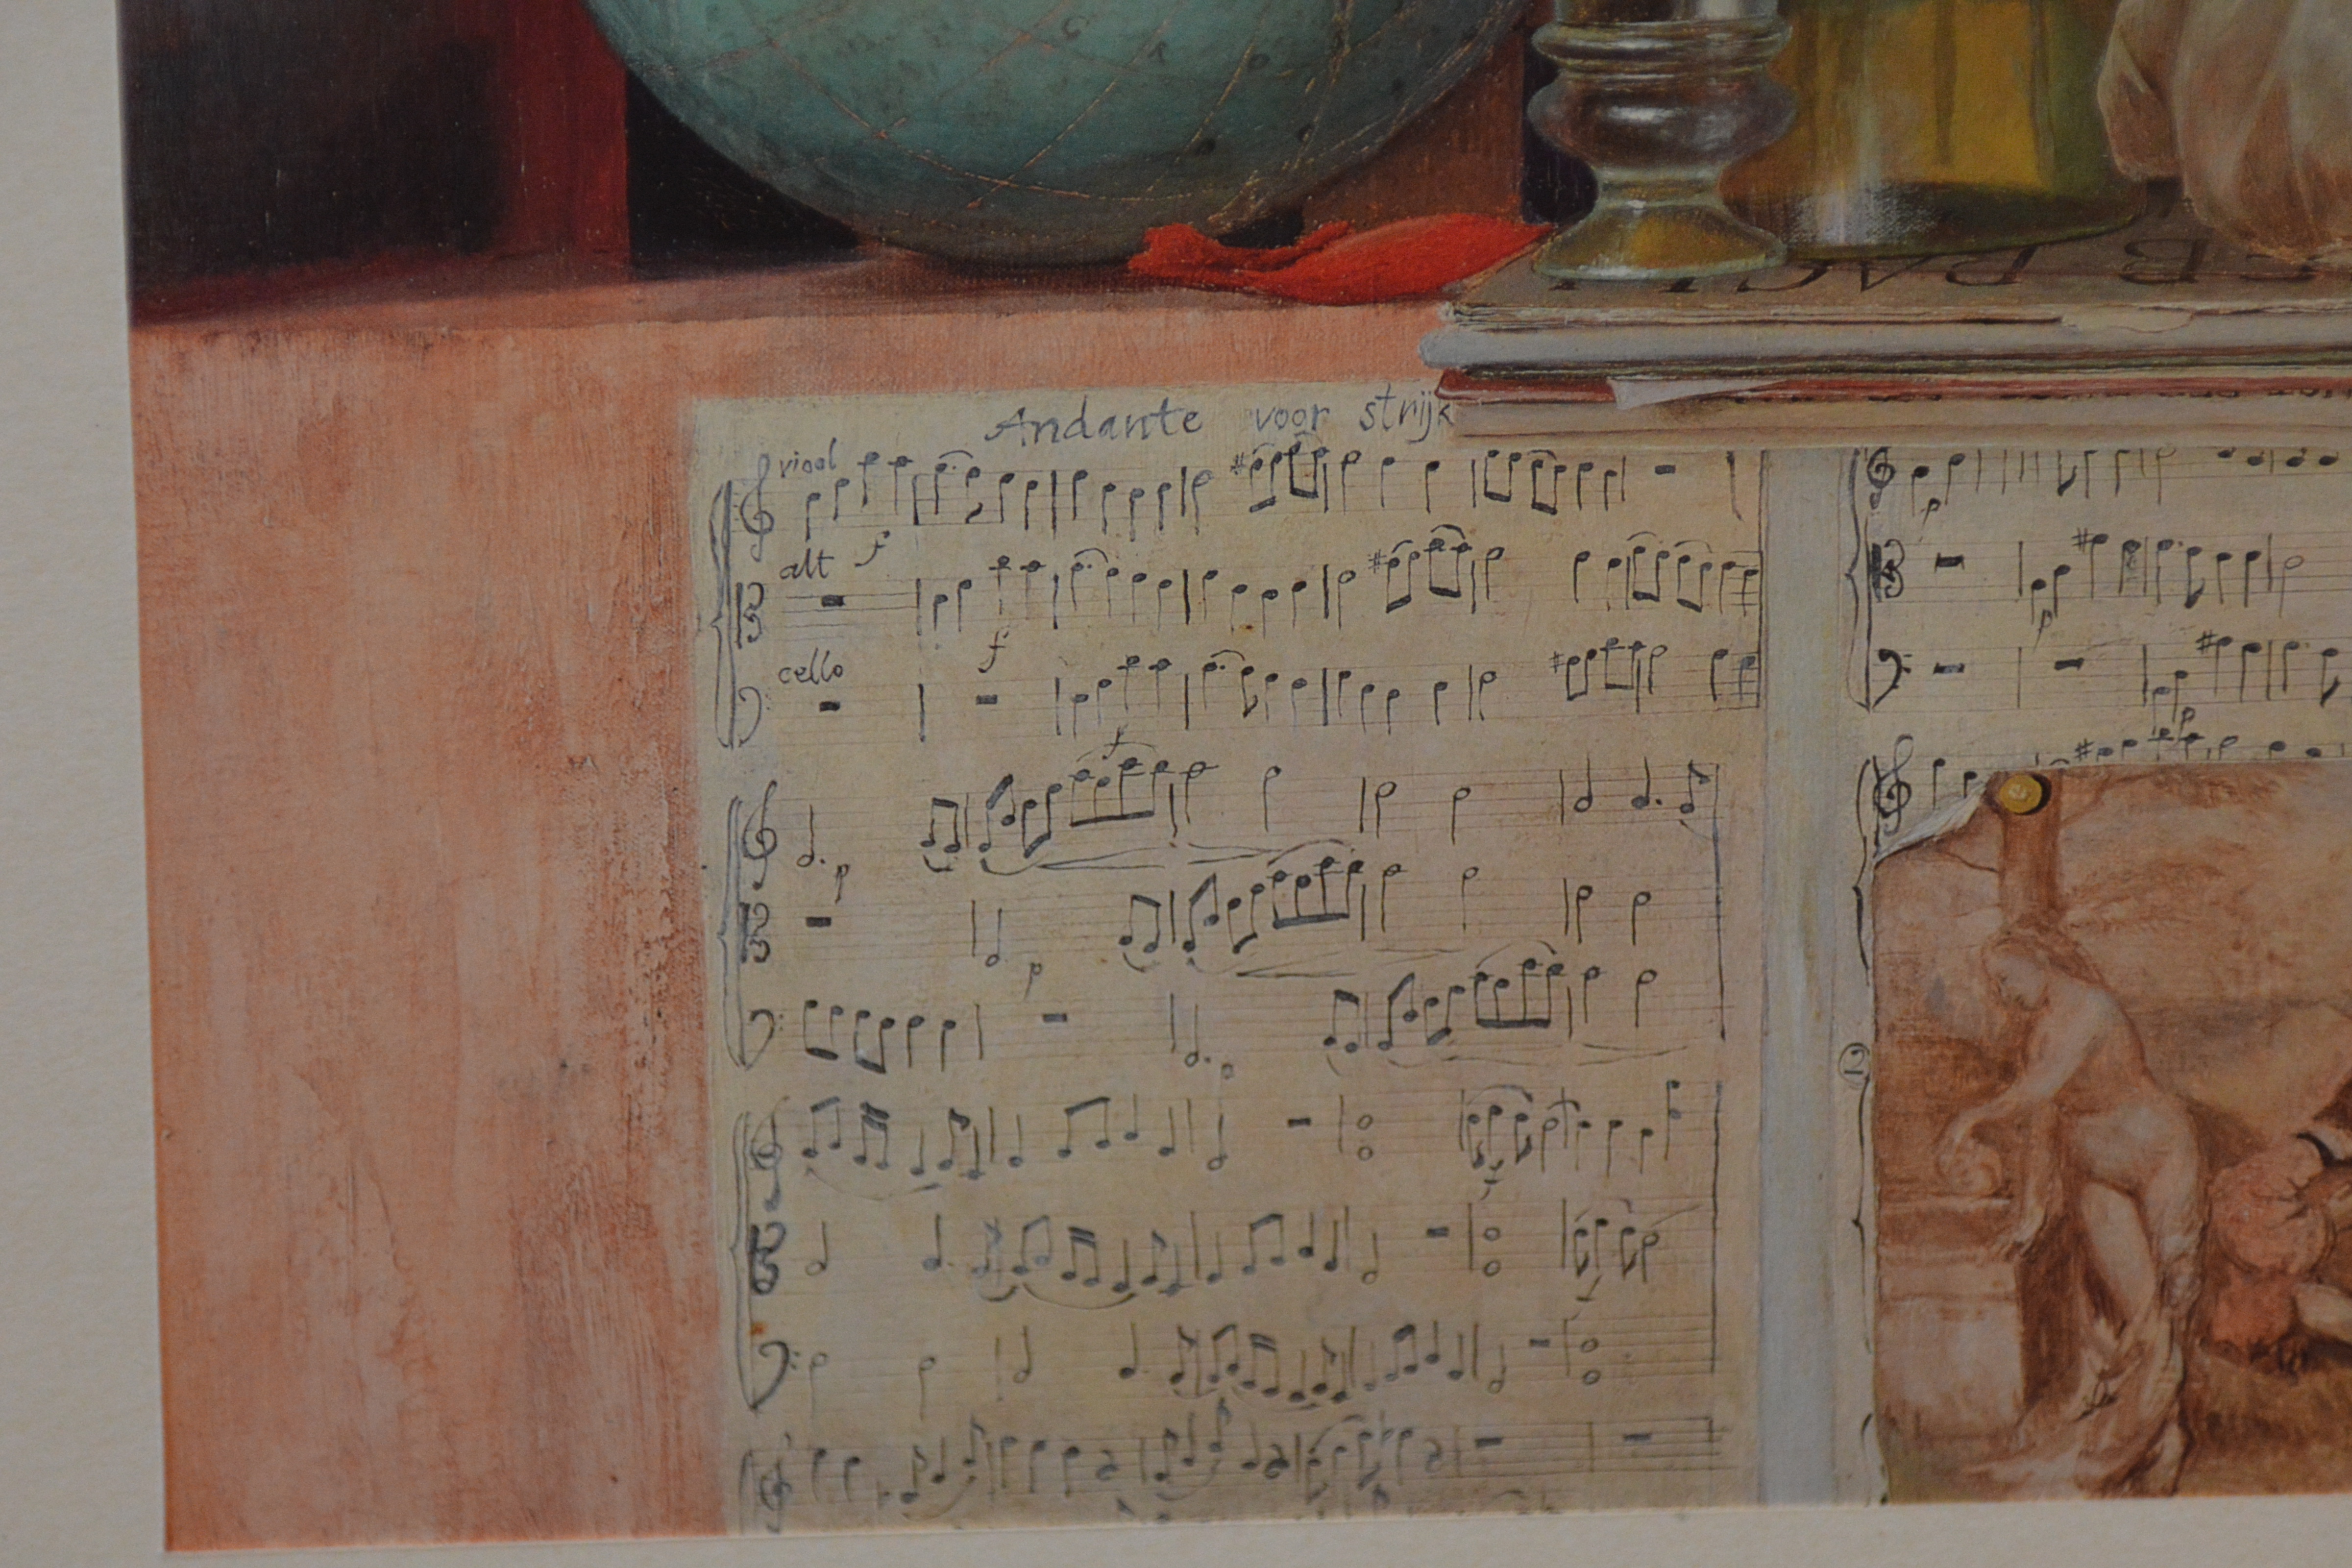 Andante voor strijk
viool
f
alt
f
cello
f
p
p
p
p
p
p
2